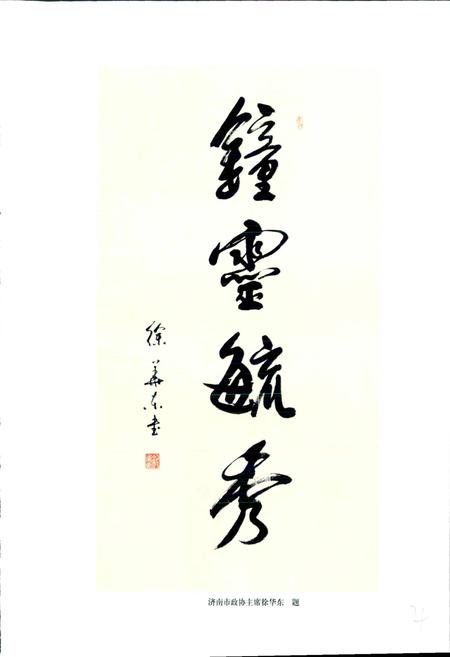 鐘靈毓秀
徐華东书
济南市政协主席徐华东 题